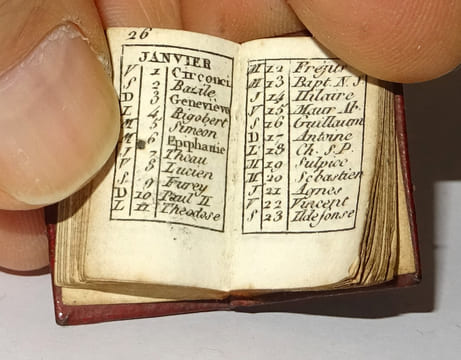 26
JANVIER
V 1 Circonci
S 2 Basile
D 3 Genevieve
L 4 Rigobert
M 5 Simeon
M 6 Epiphanie
7 Theau
V 8 Lucien
S 9 Furcy
D 10 Paul H
L 11 Theodose
M 12 Fréjus
M 13 Bapt. N. S.
J 14 Hilaire
V 15 Maur Ab.
S 16 Guillaum
D 17 Antoine
L 18 Ch. S. P.
M 19 Sulpice
M 20 Sebastien
J 21 Agnes
V 22 Vincent
S 23 Ildefonse